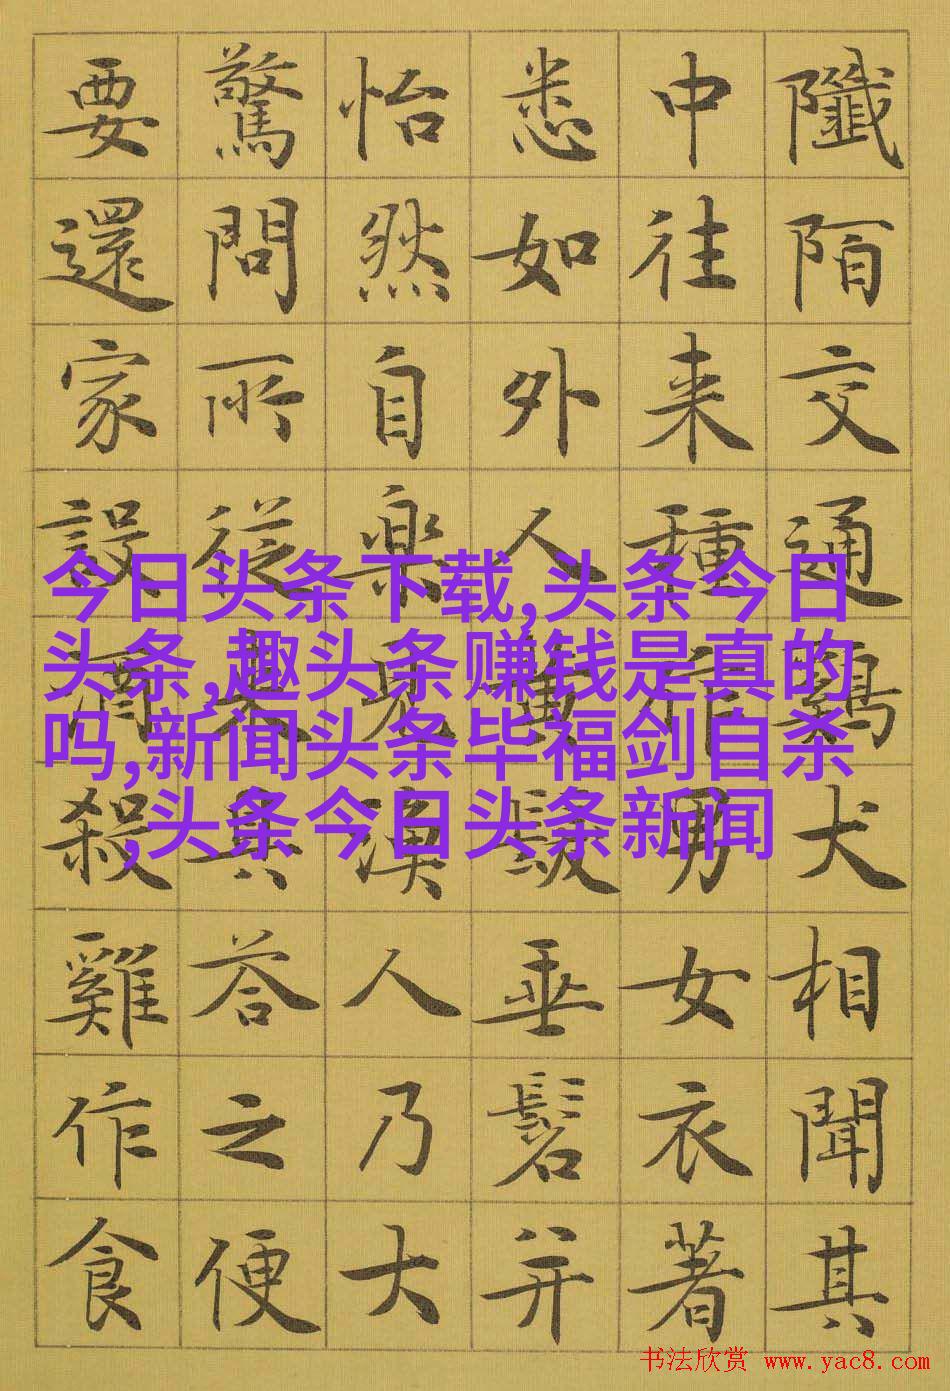 陌交通鷄犬相聞其
中往来種作男女衣著
悉如外人黃髮垂髫并
怡然自樂見漁人乃大
驚問所從來具答之便
要還家設酒殺雞作食
今日头条下载,头条今日
头条,趣头条赚钱是真的
吗,新闻头条毕福剑自杀
,头条今日头条新闻
书法欣赏 www.yac8.com